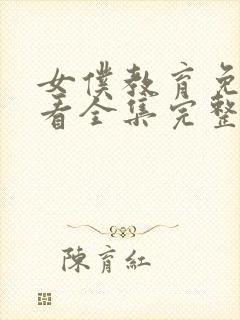 女僕教育免
看全集完整
陳育紅